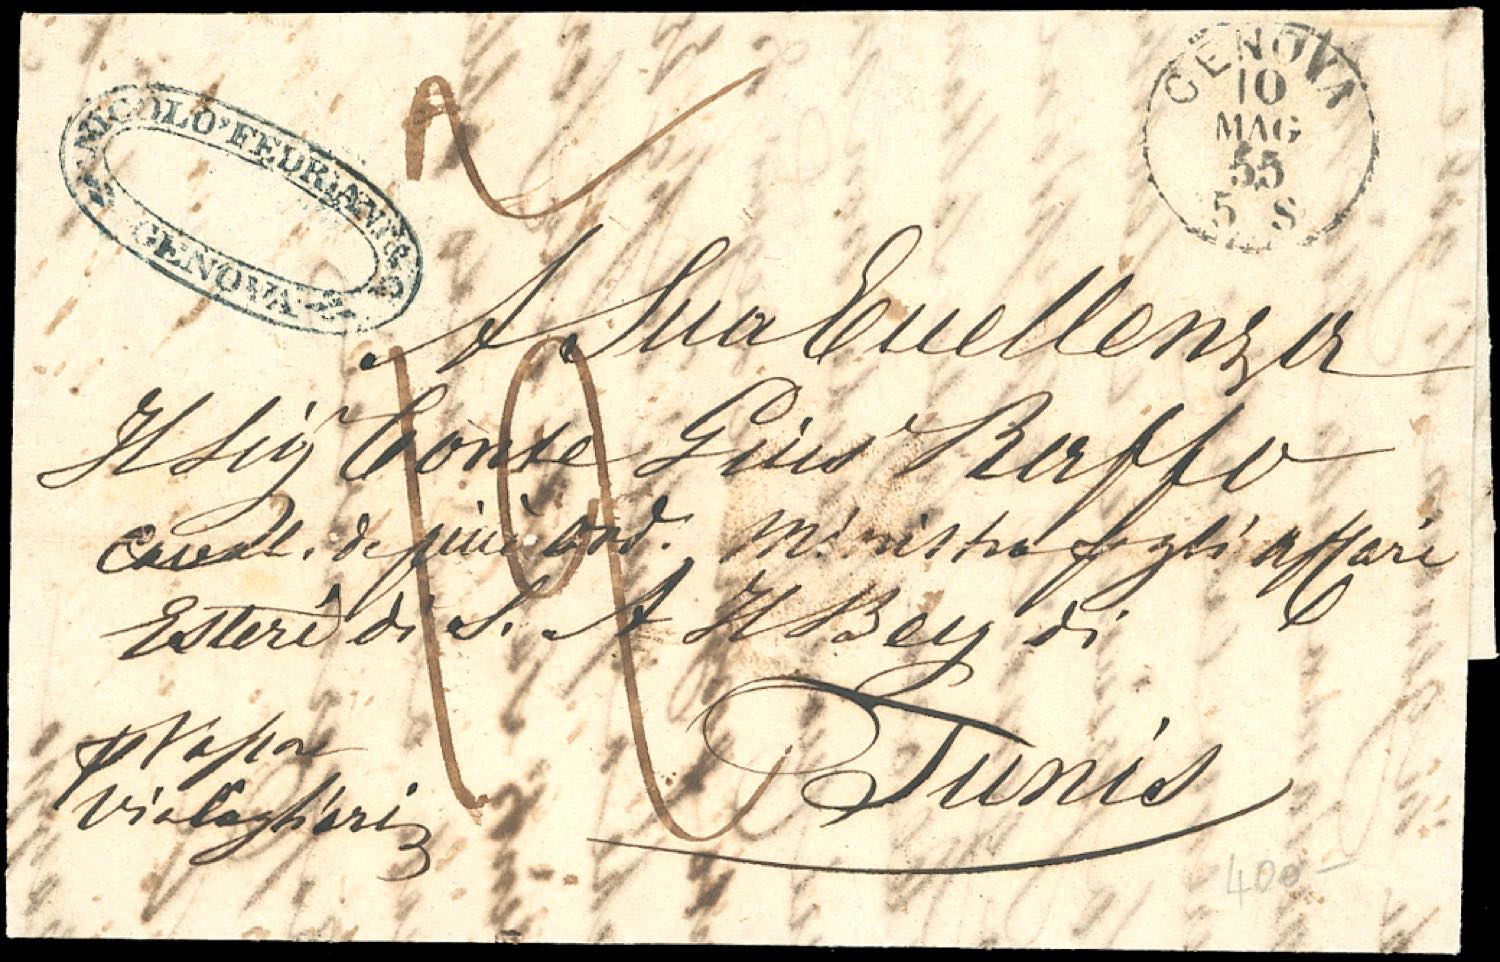 NICOLO' FEDRIANI & C.
GENOVA
GENOVA
10
MAG
55
5 S
A Sua Eccellenza
Il Sig. Conte Gius. Raffo
Caval. di più ord. Ministro degli affari
Esteri di S. A. Il Bey di
Tunis
p Vapor
Via Cagliari
400-